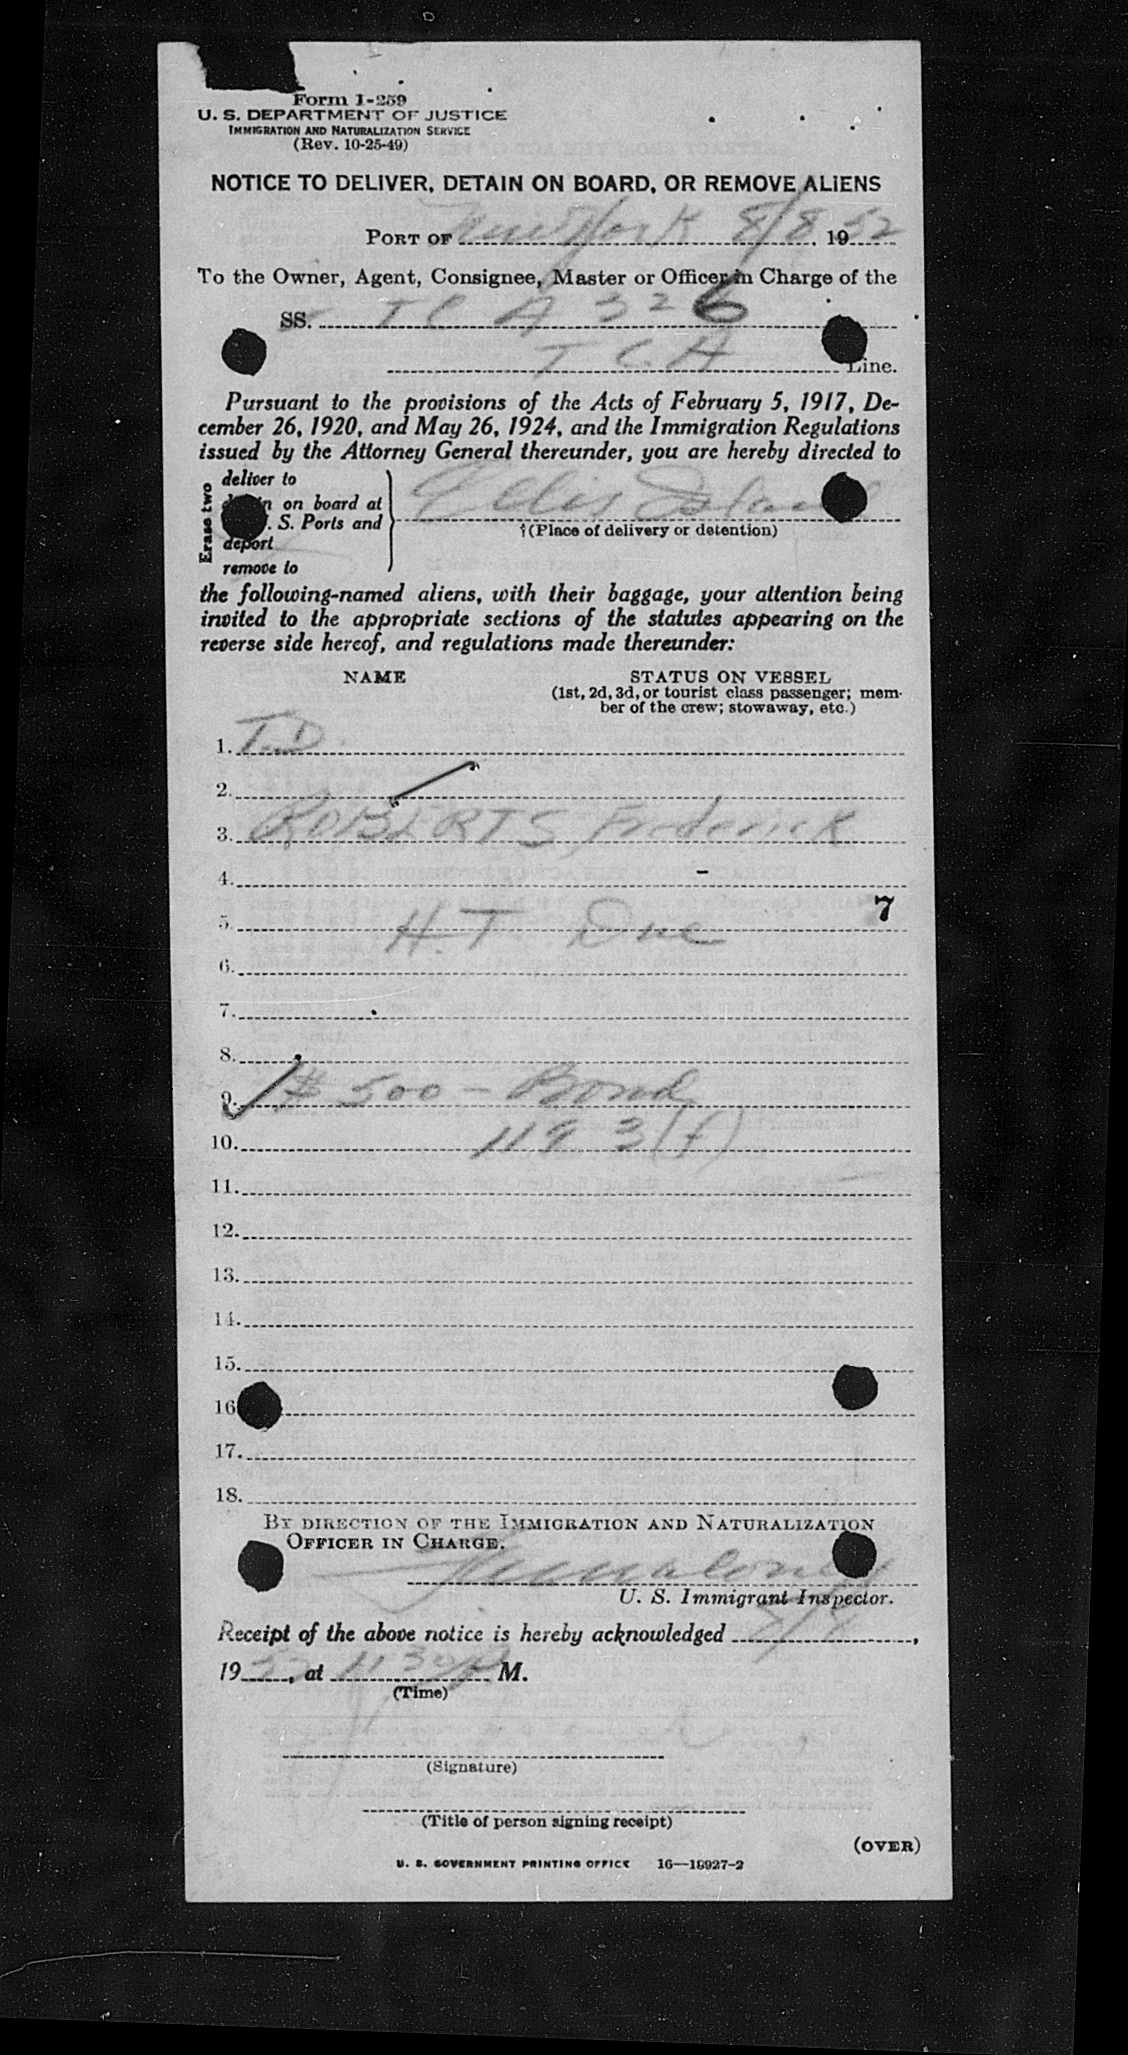 Form I-259
U. S. DEPARTMENT OF JUSTICE
IMMIGRATION AND NATURALIZATION SERVICE
(Rev. 10-25-49)
NOTICE TO DELIVER, DETAIN ON BOARD, OR REMOVE ALIENS
PORT OF New York 8/8 1952
To the Owner, Agent, Consignee, Master or Officer in Charge of the
SS. TCA 326
TCA Line.
Pursuant to the provisions of the Acts of February 5, 1917, De-
cember 26, 1920, and May 26, 1924, and the Immigration Regulations
issued by the Attorney General thereunder, you are hereby directed to
Erase two
deliver to
on board at
S. Ports and
deport
remove to
Ellis Island
†(Place of delivery or detention)
the following-named aliens, with their baggage, your attention being
invited to the appropriate sections of the statutes appearing on the
reverse side hereof, and regulations made thereunder:
NAME STATUS ON VESSEL
(1st, 2d, 3d, or tourist class passenger; mem-
ber of the crew; stowaway, etc.)
1. T.D.
2.
3. ROBERTS, Frederick
4.
5. H.T. One 7
6.
7.
8.
9. $500 - Bond
10. 119 3(f)
11.
12.
13.
14.
15.
16
17.
18.
BY DIRECTION OF THE IMMIGRATION AND NATURALIZATION
OFFICER IN CHARGE.
U. S. Immigrant Inspector.
Receipt of the above notice is hereby acknowledged
1952, at 11 30 P M.
(Time)
(Signature)
(Title of person signing receipt)
(OVER)
U. S. GOVERNMENT PRINTING OFFICE 16—18927-2